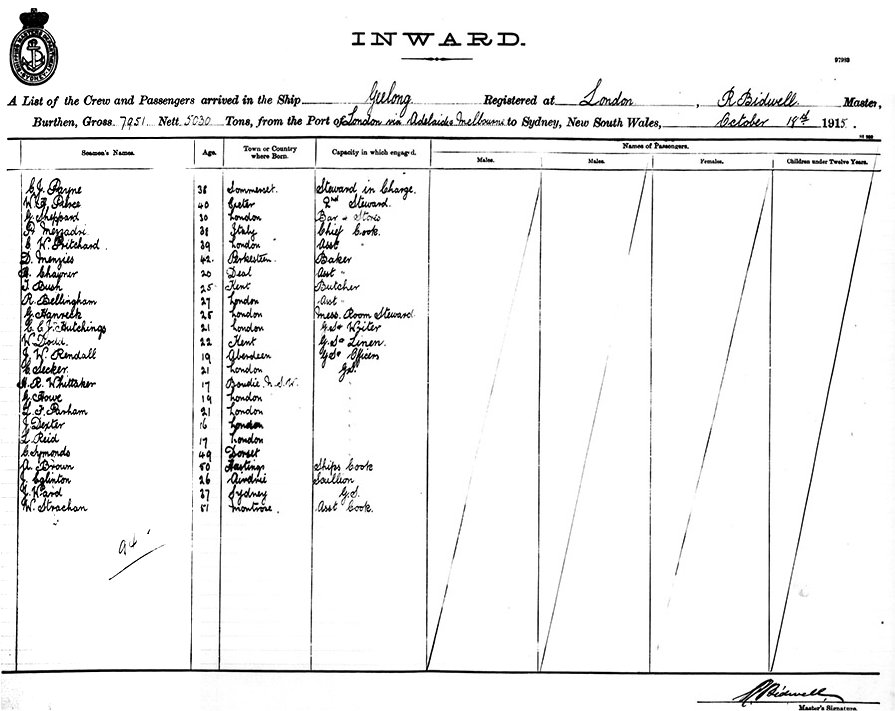 SHIPPING MASTERS DEPARTMENT SYDNEY
INWARD.
A List of the Crew and Passengers arrived in the Ship Geelong Registered at London, R Bidwell Master,
Burthen, Gross. 7951 Nett. 5030 Tons, from the Port of London via Adelaide Melbourne to Sydney, New South Wales, October 18th 1915.
Seamen's Names. Age. Town or Country where Born. Capacity in which engaged. Names of Passengers.
Males. Males. Females. Children under Twelve Years.
C. J. Payne 38 Sommerset. Steward in Charge.
W. Pierce 40 Exeter 2nd Steward.
G. Sheppard 30 London Bar " Stores
Mezzadri 38 Italy Chief Cook.
C. W. Pritchard. 39 London Asst "
D. Menzies 42. Baker
Chayner 20 Deal Asst "
T. Bush 25 Kent Butcher
R. Bellingham 27 London Asst "
G. Hanreck 25 London Mess. Room Steward
C. E. J. Hutchings 21 London G.S. Writer
W. Dodd. 22 Kent G.S. Linen.
J. W. Rendall 19 Aberdeen G.S. Officers
Secker. 21 London G.S.
R. Whittaker 17 N.S.W.
G. Howe 19 London
F. Parham 21 London
J. Dexter 16 London
L. Reid 17 London
C. Symonds 49 Dorset
A. Brown 50 Hastings Ships Cook
J. Eglinton 26 Airdrie Scullion
J. Ward 37 Sydney G.S.
W. Strachan 51 Montrose. Asst Cook.
94
R Bidwell
Master's Signature.